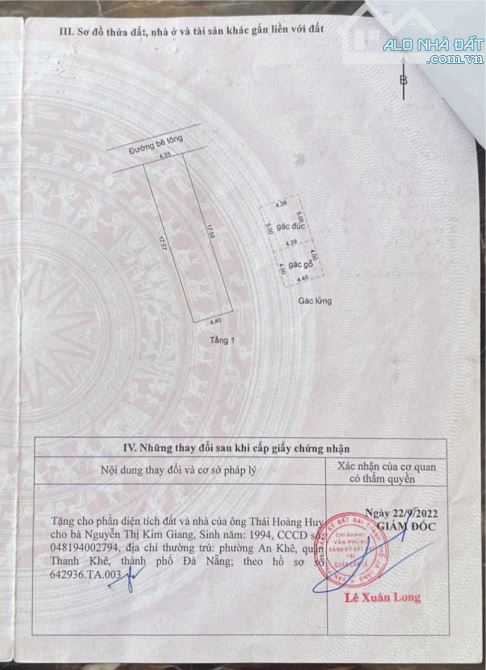 III. Sơ đồ thửa đất, nhà ở và tài sản khác gắn liền với đất
ALO NHÀ ĐẤT
B
Đường bê tông
4.35
17.57
17.56
4.40
Tầng 1
4.38
5.00
5.00
gác đúc
4.39
4.00
4.00
gác gỗ
4.40
Gác lửng
IV. Những thay đổi sau khi cấp giấy chứng nhận
Nội dung thay đổi và cơ sở pháp lý
Xác nhận của cơ quan
có thẩm quyền
Tặng cho phần diện tích đất và nhà của ông Thái Hoàng Huy
cho bà Nguyễn Thị Kim Giang, Sinh năm: 1994, CCCD số
048194002794, địa chỉ thường trú: phường An Khê, quận
Thanh Khê, thành phố Đà Nẵng; theo hồ sơ số
642936.TA.003
Ngày 22/9/2022
GIÁM ĐỐC
CHI NHÁNH
VĂN PHÒNG
ĐĂNG KÝ ĐẤT ĐAI
TẠI
QUẬN CẨM LỆ
Lê Xuân Long